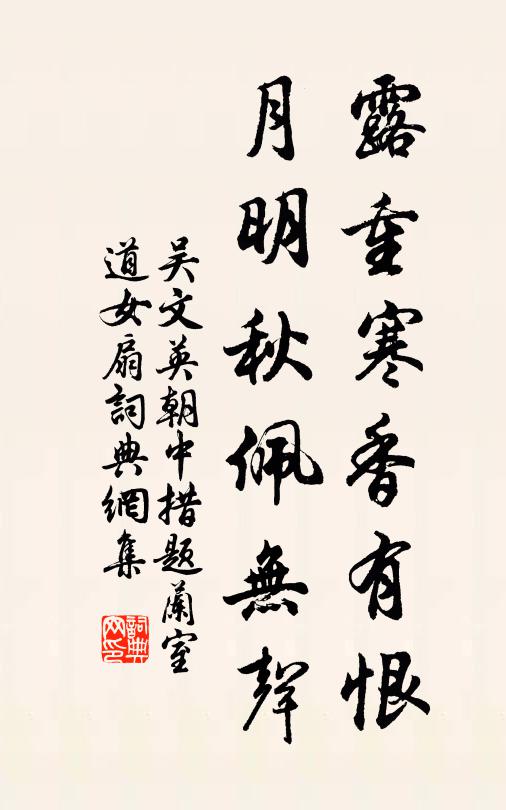 露重寒香有恨
月明秋佩無聲
吴文英朝中措题蘭室
道女扇詞典網集
詞典
网印